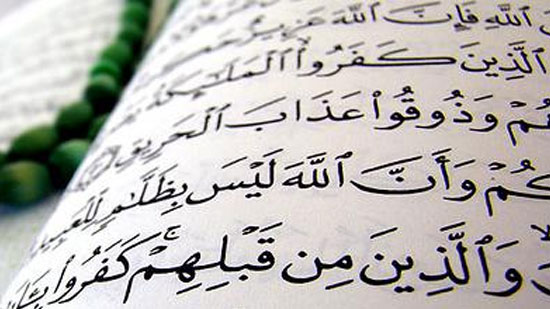 ٱللَّهِ فَإِنَّ ٱللَّهَ عَزِيزٌ
ٱلَّذِينَ كَفَرُوا۟ ٱلْمَلَـٰٓئِكَةُ
ـهُمْ وَذُوقُوا۟ عَذَابَ ٱلْحَرِيقِ
ـكُمْ وَأَنَّ ٱللَّهَ لَيْسَ بِظَلَّـٰمٍ لِّلْعَبِيدِ
وَٱلَّذِينَ مِن قَبْلِهِمْ ۚ كَفَرُوا۟